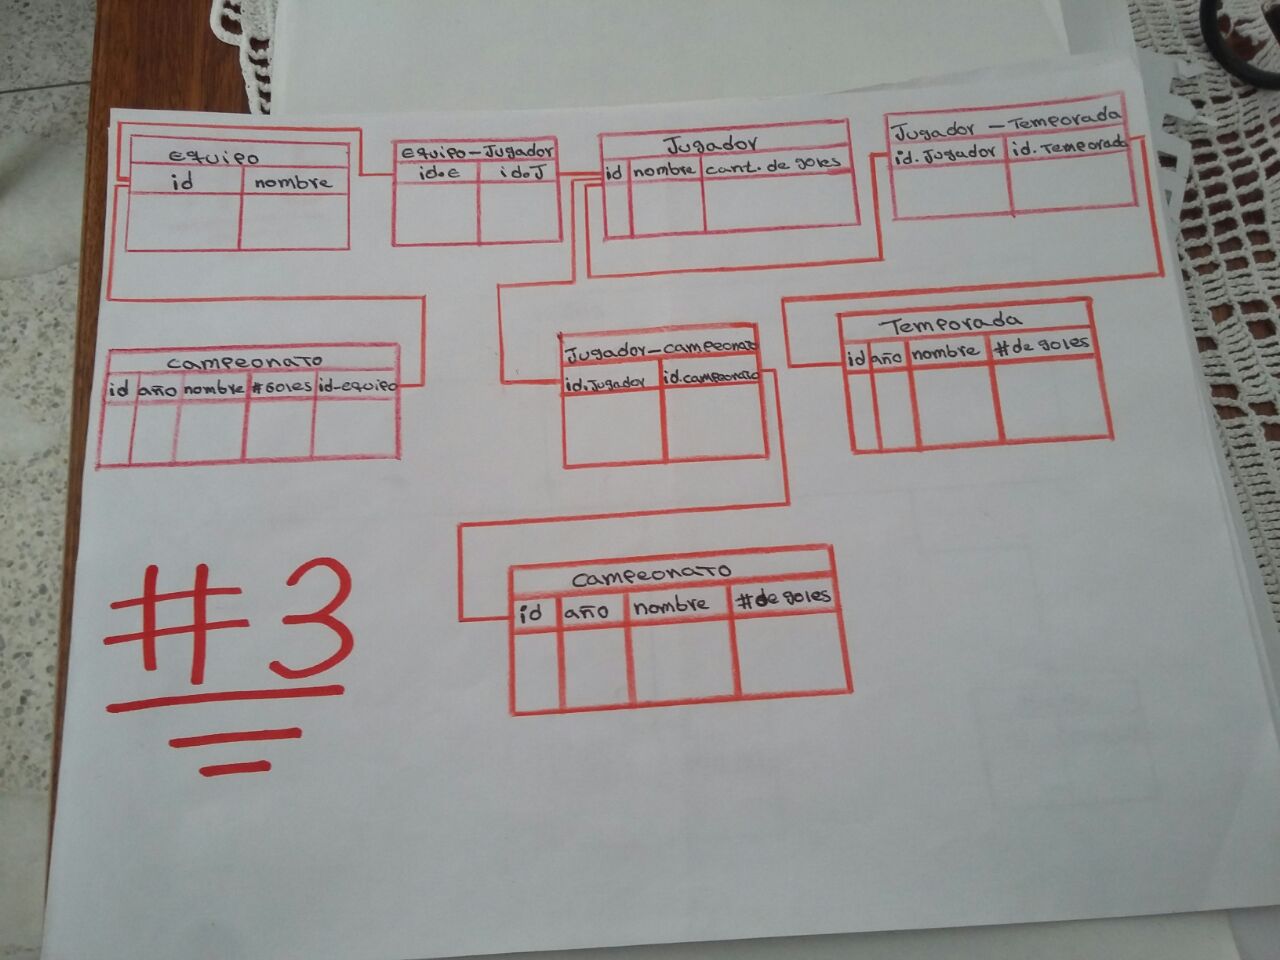 Equipo
id nombre
Equipo-Jugador
id.E id.J
Jugador
id nombre cant. de goles
Jugador-Temporada
id.Jugador id.Temporada
campeonato
id año nombre #Goles id-equipo
Jugador-campeonato
id.Jugador id.campeonato
Temporada
id año nombre # de goles
campeonato
id año nombre # de goles
#3